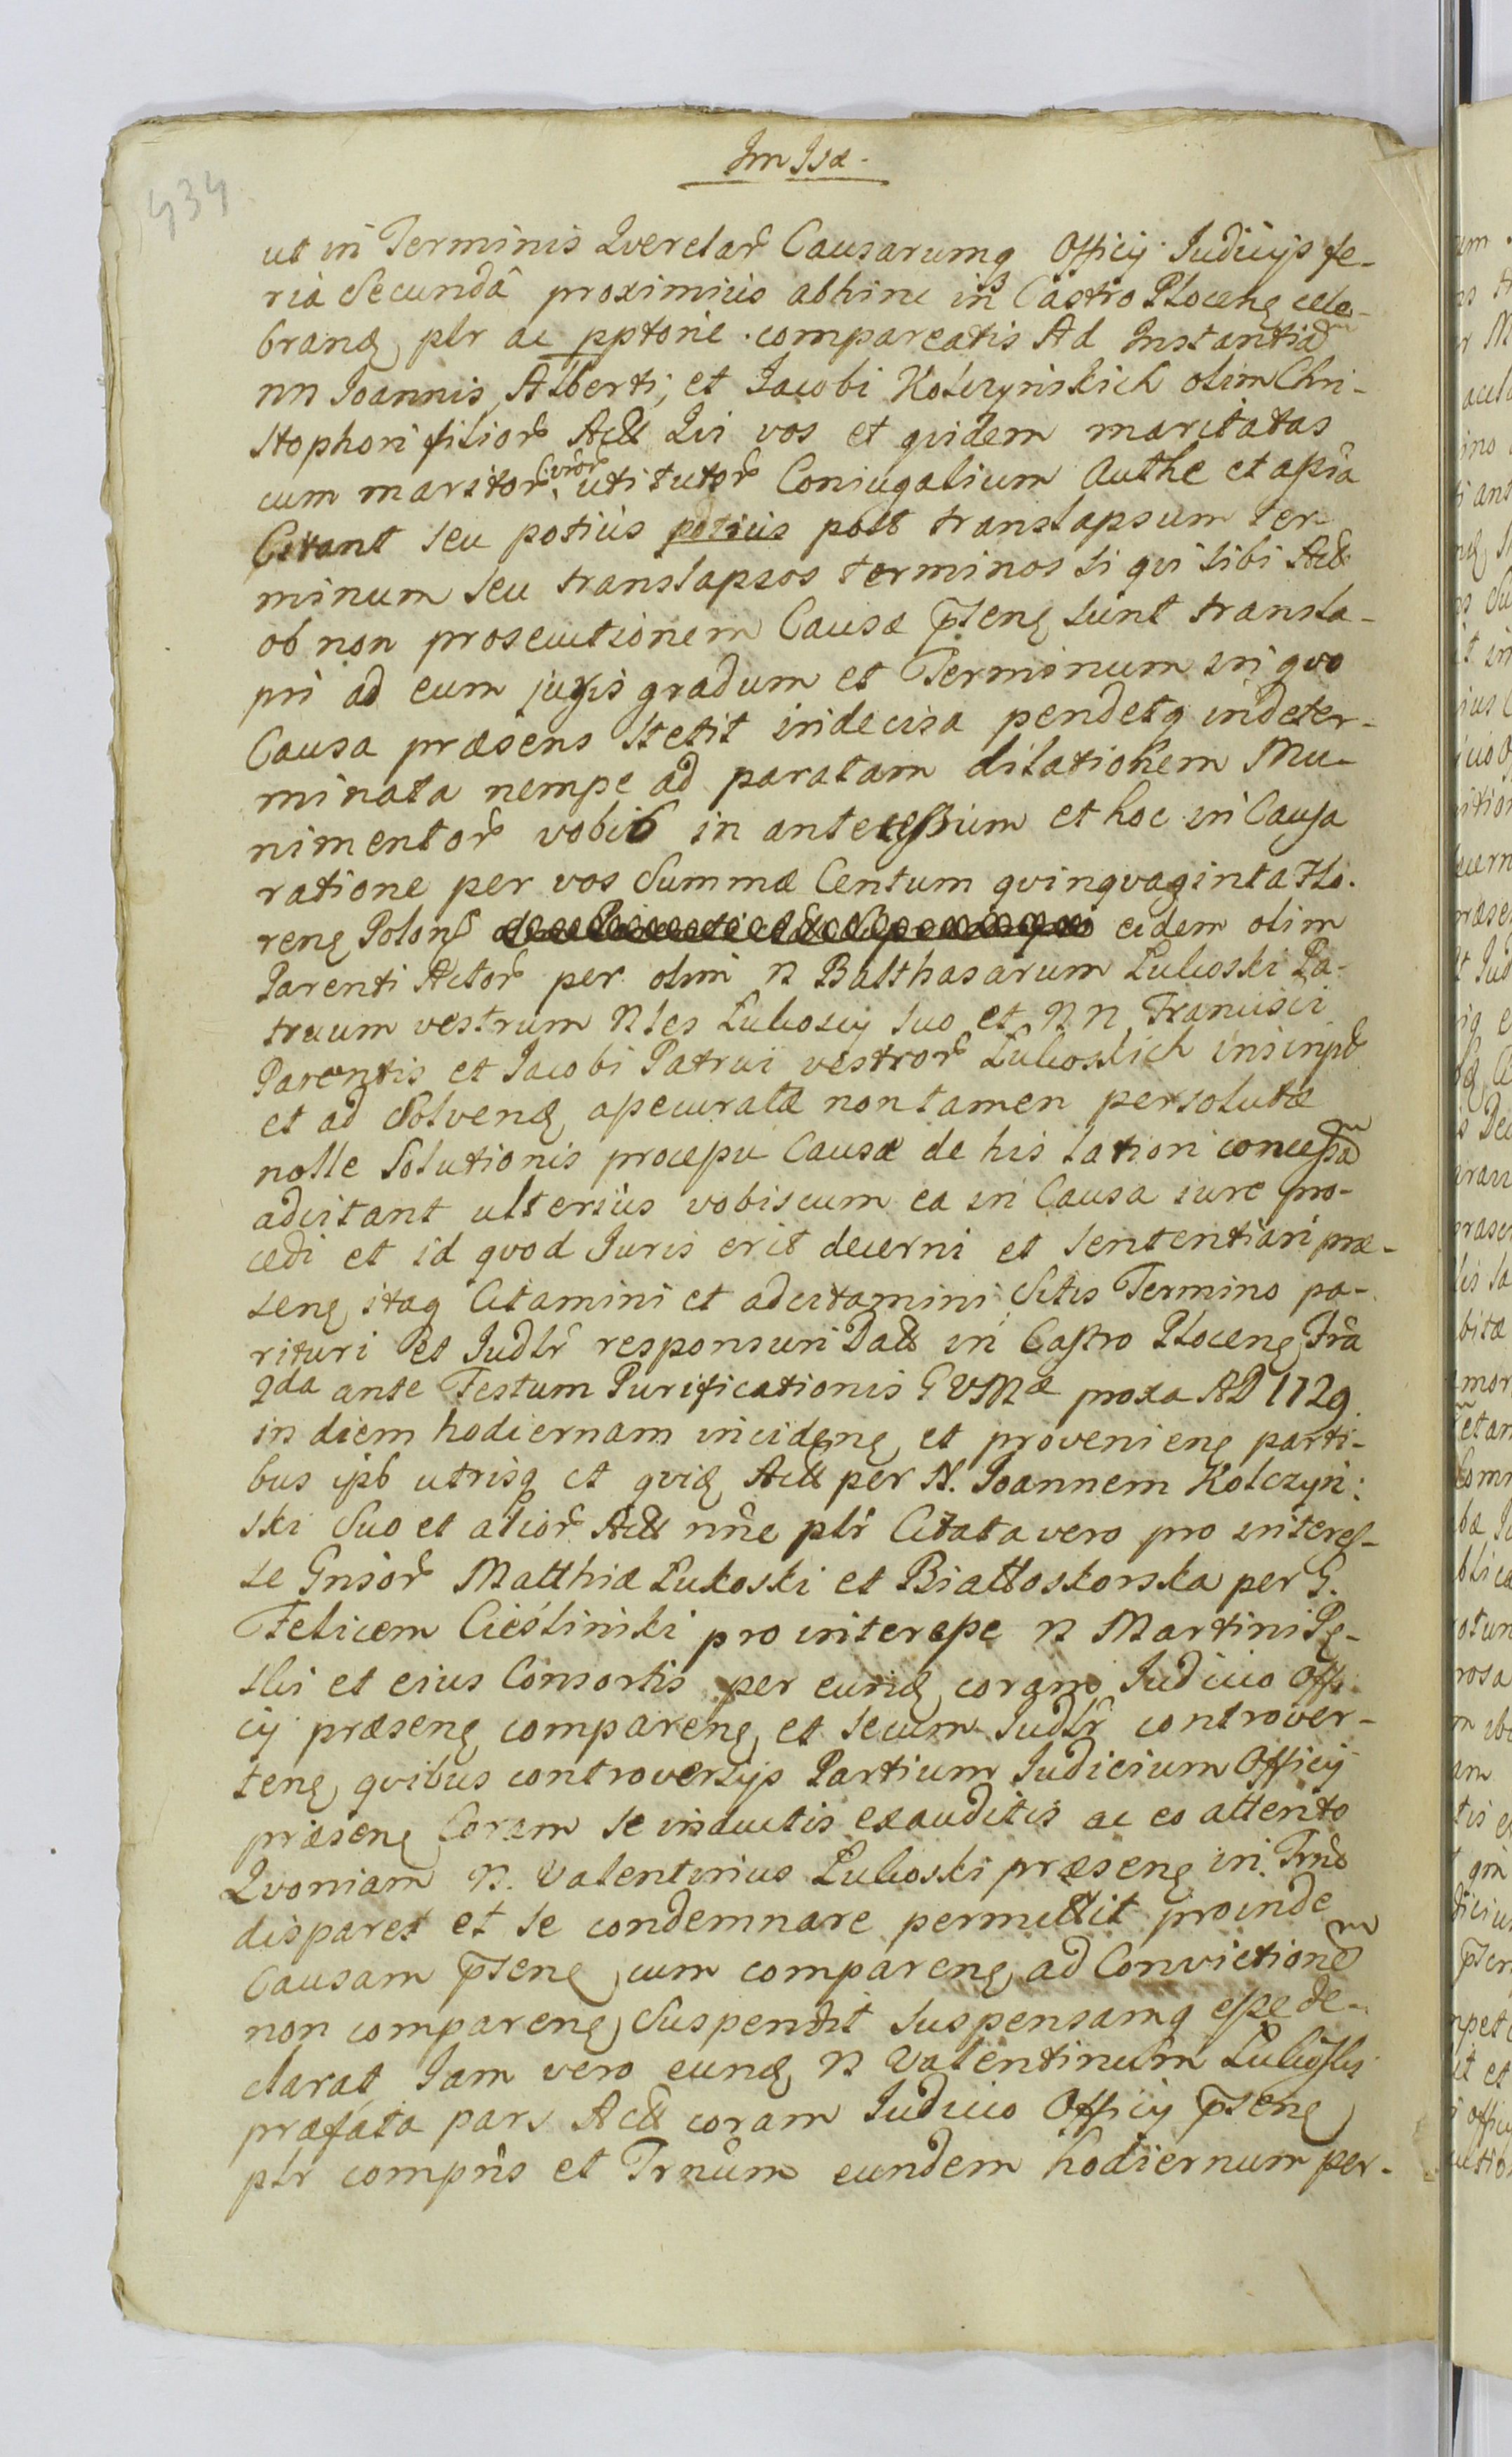 Im Isæ.
434
ut in Terminis Qverelar Causarumq Officij Judicijs fe-
ria Secundâ proximius abhinc in Castro Ploceng cele-
brang plr ac pptorie comparcatis Ad Instantiam
nn Joannis, Alberti, et Jacobi Kolczynskich olim Chri-
stophori filior Act Qvi vos et qvidem maritatas
cum maritor vror uti tutor Coniugalium Authe et assia
Citant seu potius potius post translapsum Ter-
minum seu translapsos terminos si qvi sibi Act
ob non prosecutionem Causæ pseng sunt transla-
psi ad eum juris gradum et Terminum in qvo
Causa præsens stetit indecisa pendetq indeter-
minata nempe ad paratam dilationem Mu-
nimentor vobis in antecessum et hoc in Causa
ratione per vos Summæ Centum qvinqvaginta Flo.
reng Polong eidem olim
Parenti Actor per olim N Balthasarum Lukoski Pa-
truum vestrum Nles Lukoscy suo et N N Francisci
Parentis et Jacobi Patrui vestror Lukoskich inscript
et ad Solveng assecuratæ non tamen persolutæ
nolle Solutionis processu Causæ de his latiori concessam
adcitant ulterius vobiscum ea in Causa iure pro-
cedi et id qvod Juris erit decerni et sententiari præ-
seng itaq Citamini et adcitamini Sitis Termino pa-
rituri et Judlr responsuri Datt in Castro Ploceng Fria
2da ante Festum Purificationis G V M æ proxa AD 1729.
in diem hodiernam incideng et provenieng parti-
bus ipb utrisq et qvid Act per N. Joannem Kolczyn:
ski Suo et alior Act nne plr Citata vero pro interes-
se Gnsor Matthiæ Lukoski et Białloskorska per G.
Felicem Cieślinski pro interesse N Martini Pę-
ski et eius Consortis per eund coram Judicio Offi
cij præseng compareng et secum Judlr controver-
teng qvibus controversijs Partium Judicium Officij
præseng Coram se inductis exauditis ac eo attento
Qvoniam N. Valentinus Lukoski præseng in Trno
disparet et se condemnare permittit proinde
Causam pseng cum compareng ad Convictionem
non compareng Suspendit suspensamq esse de-
clarat Jam vero eund N Valentinum Lukoski
præfata pars Act coram Judicio Officij pseng
plr comprns et Trnum eundem hodiernum per-